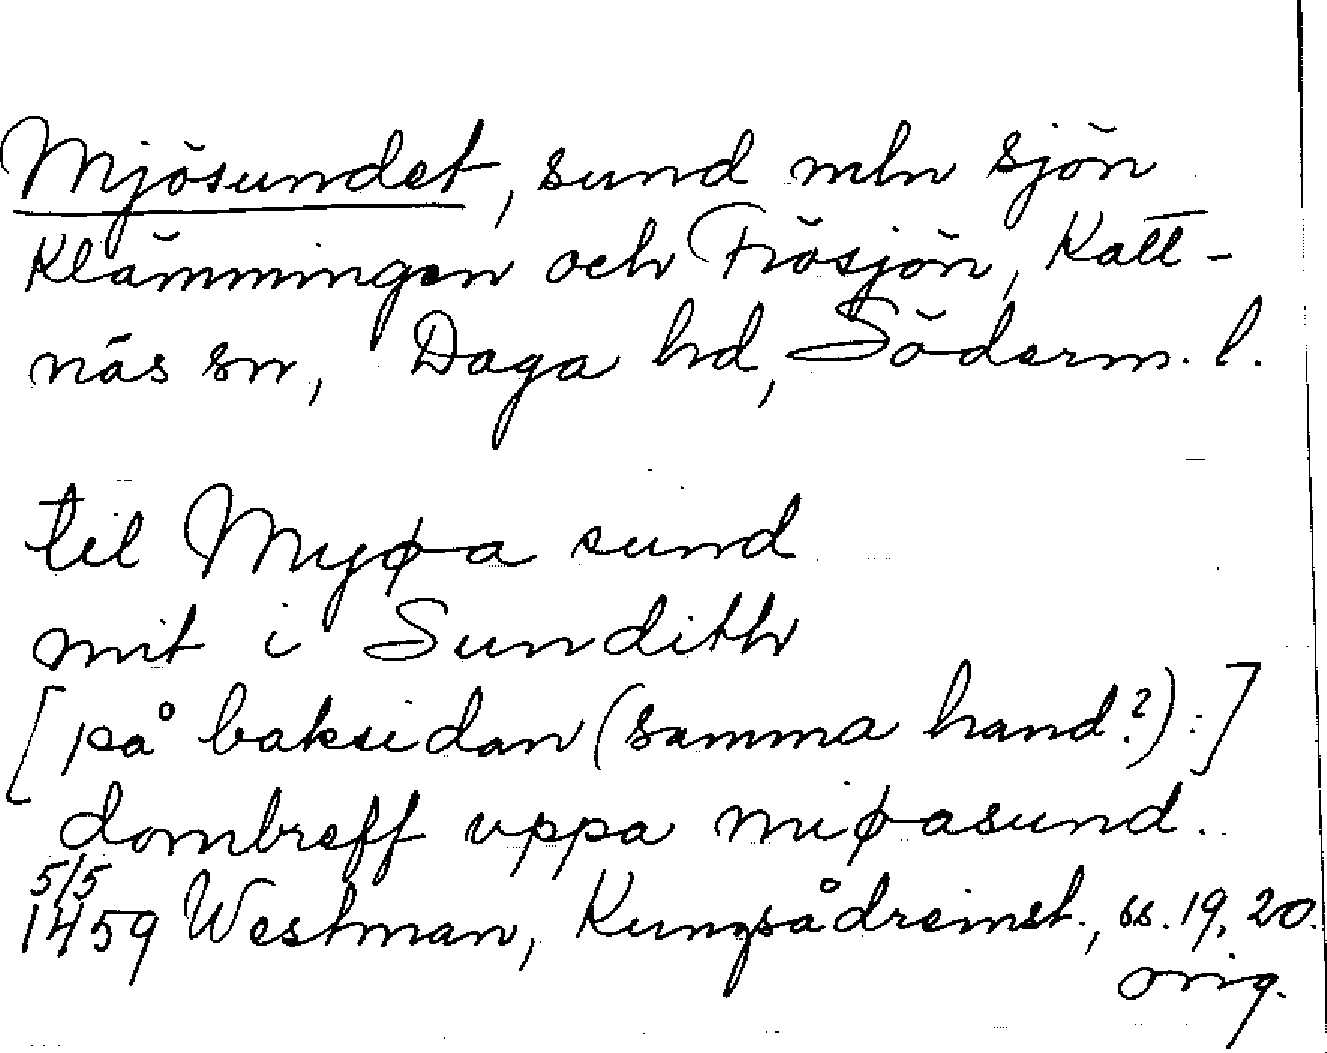 Mjösundet, sund mln sjön
Klämmingen och Frösjön, Katt-
näs sn, Daga hd, Söderm. l.
til Myøa sund
mit i Sundith
[på baksidan (samma hand?):]
dombreff uppa miøasund.
5/5
1459 Westman, Kungsådreinst., ss. 19, 20.
orig.